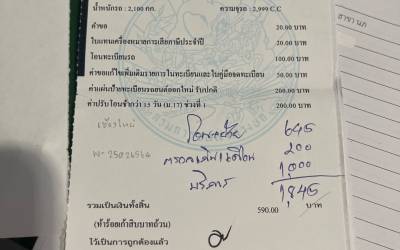 น้ำหนักรถ : 2,100 กก. ความจุรถ : 2,999 C.C
ค่าขอ 20.00 บาท
ใบแทนเครื่องหมายการเสียภาษีประจำปี 20.00 บาท
โอนทะเบียนรถ 100.00 บาท
ค่าขอแก้ไขเพิ่มเติมรายการในทะเบียนและใบคู่มือจดทะเบียน 50.00 บาท
ค่าแผ่นป้ายทะเบียนรถยนต์ออกใหม่ รับปกติ 200.00 บาท
ค่าปรับโอนช้ากว่า 15 วัน (ม.17) ช่วงที่ 1 200.00 บาท
เชียงใหม่
645
200
บริการ 1,000
1,845 บาท
รวมเป็นเงินทั้งสิ้น 590.00 บาท
(ห้าร้อยเก้าสิบบาทถ้วน)
ไว้เป็นการถูกต้องแล้ว